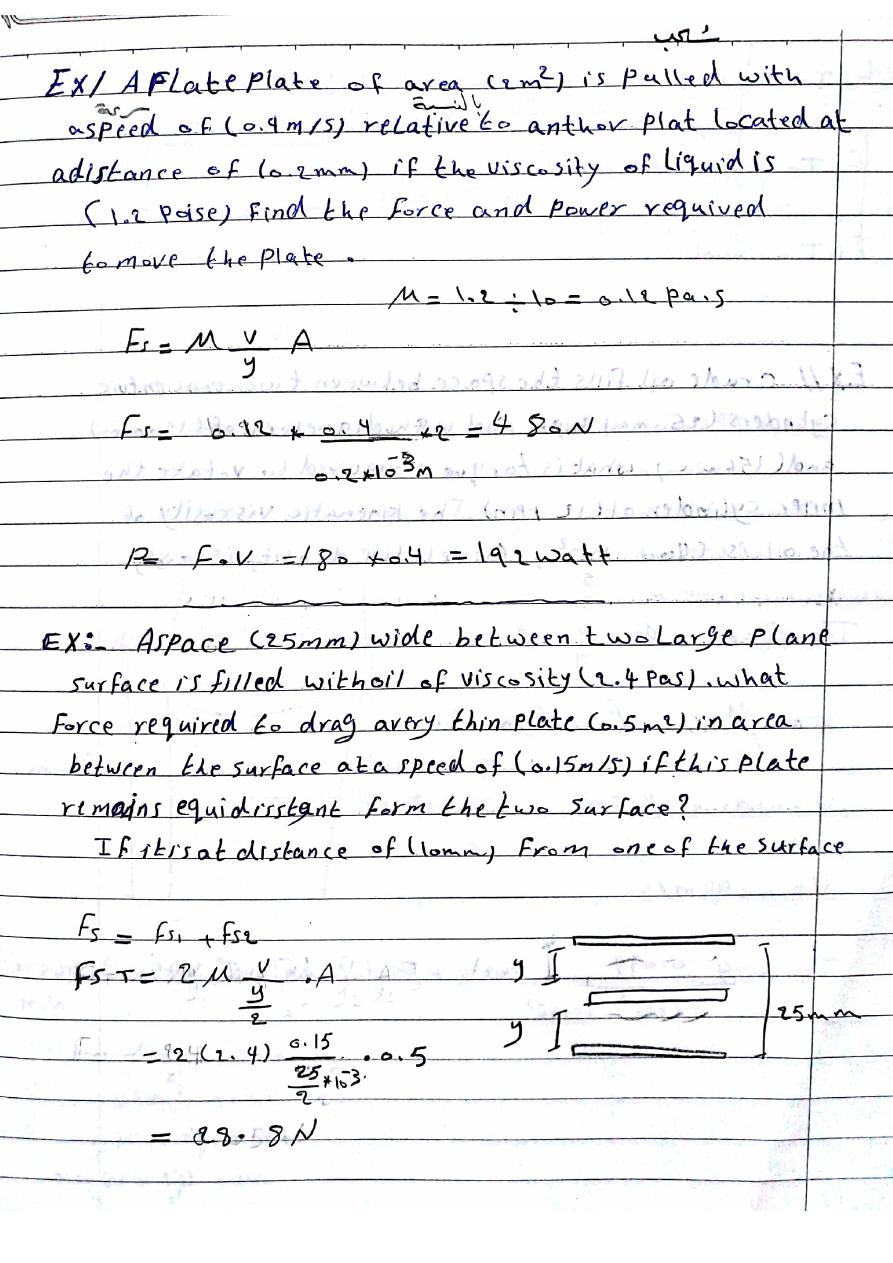 سحب
EX/ A Flate Plate of area (2m²) is Pulled with
سرعة بالنسبة
aspeed of (0.4m/s) relative to anthor plat located at
adistance of (0.2mm) if the viscosity of liquid is
(1.2 Poise) Find the force and power required
to move the Plate.
M = 1.2 ÷ 10 = 0.12 pa.s
Fs = M V/y A
Fs = 0.12 * 0.4/0.2*10⁻³m *2 = 480N
P = F.V = 180 * 0.4 = 192 watt
EX:- Aspace (25mm) wide between two Large Plane
surface is filled with oil of viscosity (2.4 pas). what
Force required to drag avery thin plate (0.5m²) in area
between the surface at a speed of (0.15m/s) if this Plate
remains equidisstant form the two surface?
If it is at distance of (10mm) From one of the surface
Fs = Fs1 + Fs2
Fs.T = 2 M V/(y/2) . A
y
= 2(2.4) 0.15/(25/2 *10⁻³) . 0.5
y
25mm
= 28.8N